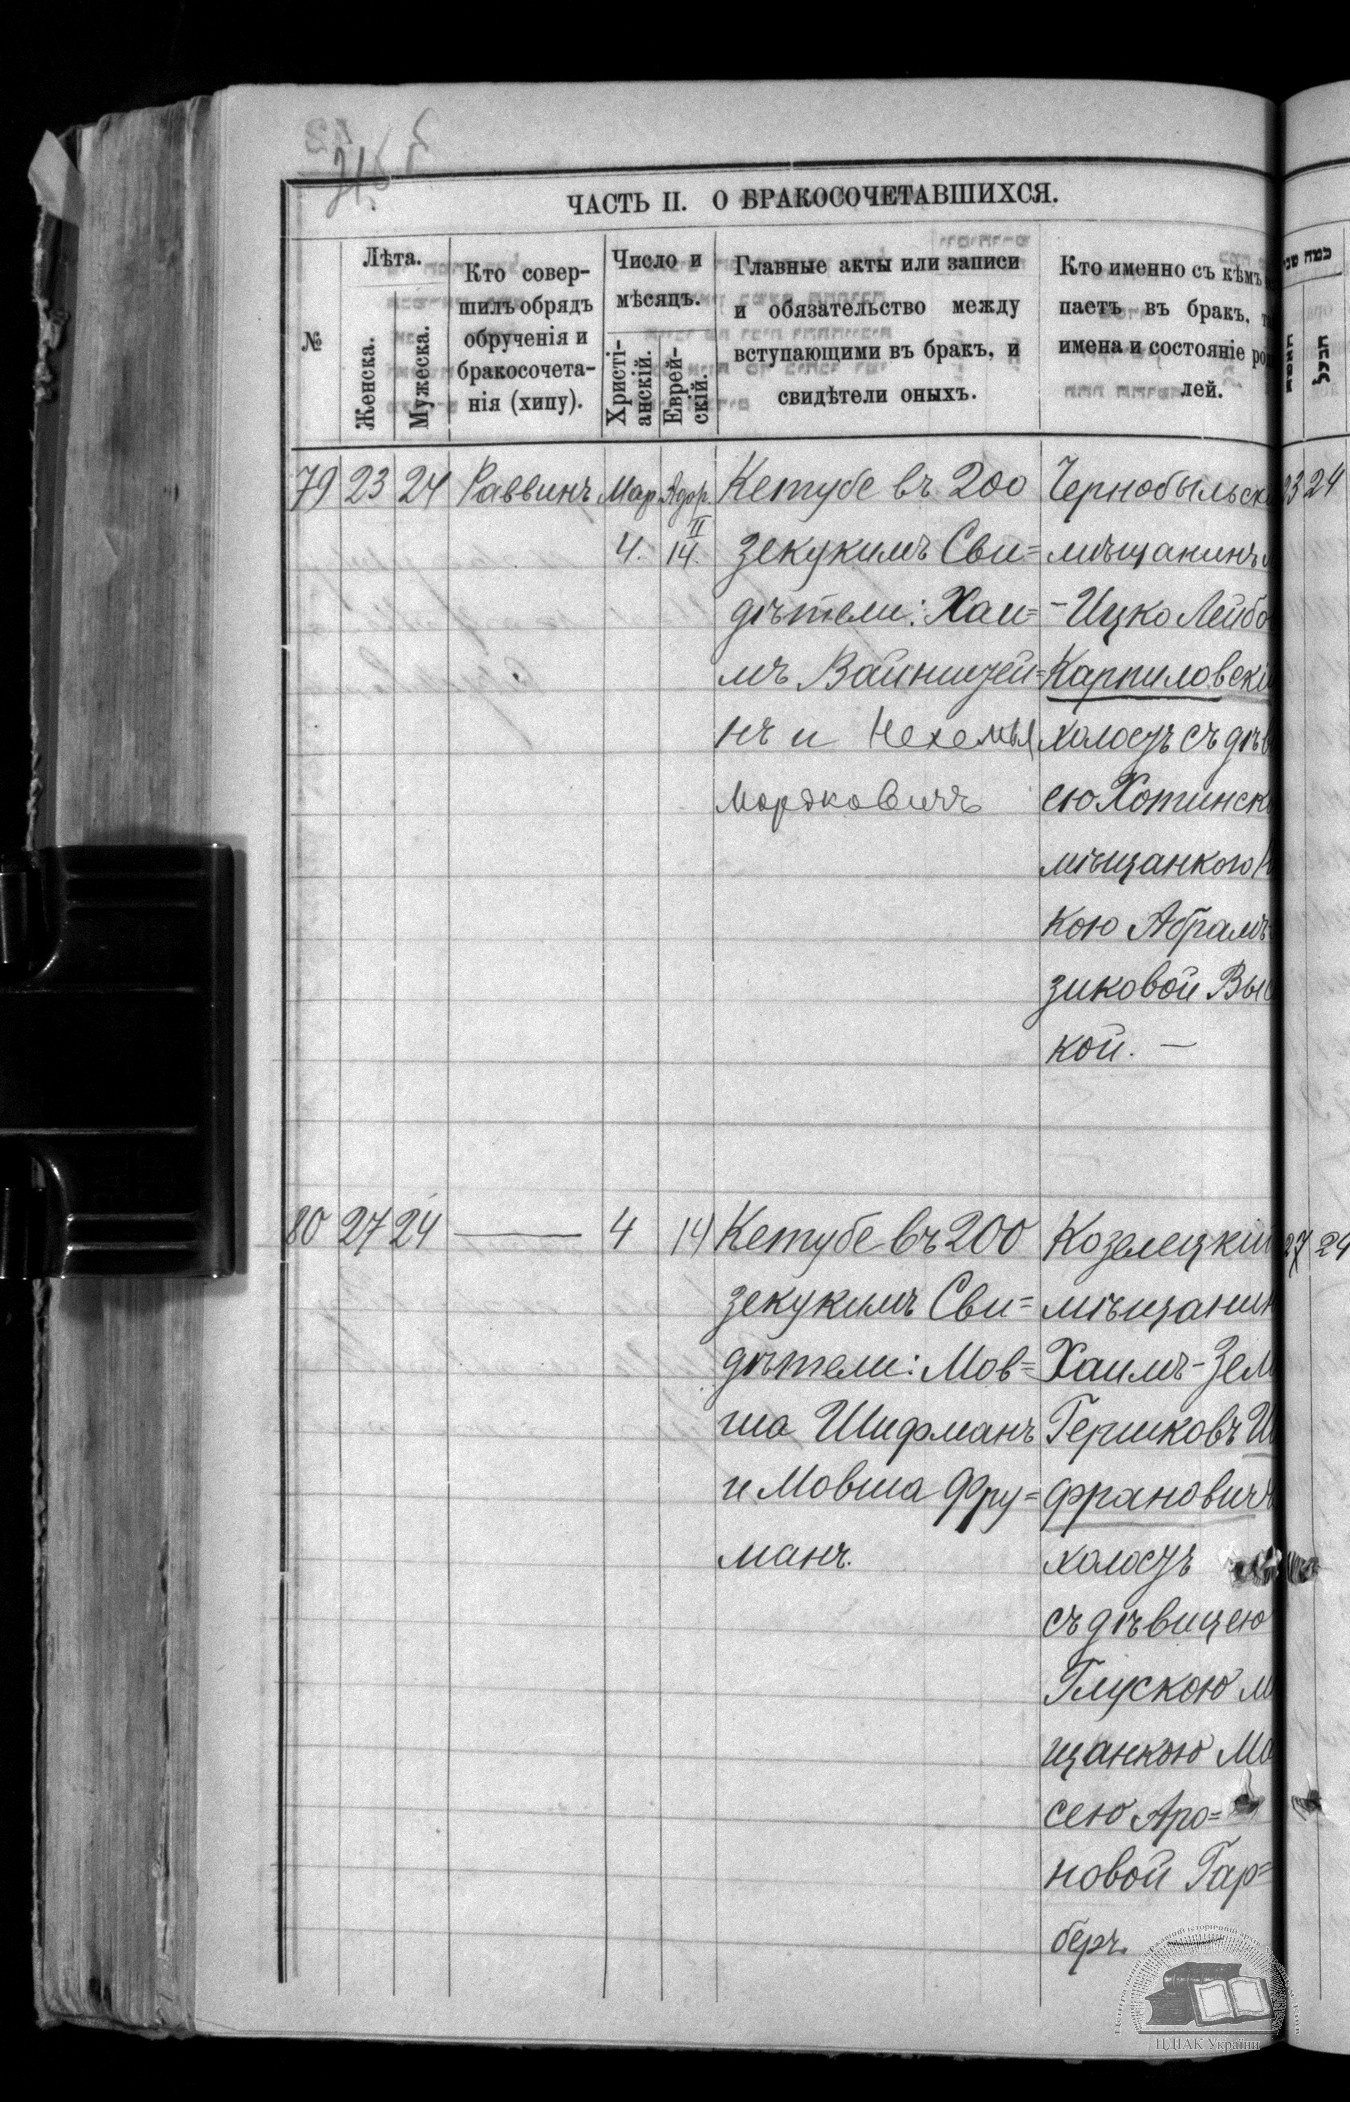 ЧАСТЬ II. О БРАКОСОЧЕТАВШИХСЯ.
№
Лѣта.
Женска.
Мужеска.
Кто совер-
шилъ обрядъ
обрученія и
бракосочета-
нія (хипу).
Число и
мѣсяцъ.
Христі-
анскій.
Еврей-
скій.
Главные акты или записи
и обязательство между
вступающими въ бракъ, и
свидѣтели оныхъ.
Кто именно съ кѣмъ
паетъ въ бракъ,
имена и состояніе ро
лей.
79 23 24 Раввинъ Мар. Адар.
II
4. 14.
Кетубе въ 200
зекукимъ Сви=
дѣтели: Хаи=
мъ Вайнштей=
нъ и Нехемья
Мордковичъ
Чернобыльск
мѣщанинъ
-Ицко Лейбо
Карпиловскі
холостъ съ дѣв
ею Хотинск
мѣщанкою
кою Абрамъ
зиковой Вы
кой. —
80 27 24 — 4 14
Кетубе въ 200
зекукимъ Сви=
дѣтели: Мов=
ша Шифманъ
и Мовша Фру=
манъ.
Козелецкій
мѣщанин
Хаимъ-Зел
Гершковъ
франовичъ
холостъ
съ дѣвицею
Глускою м
щанкою
сею Аро=
новой Гар=
беръ.
כמה שני
23 24
27 24
ЦДІАК України